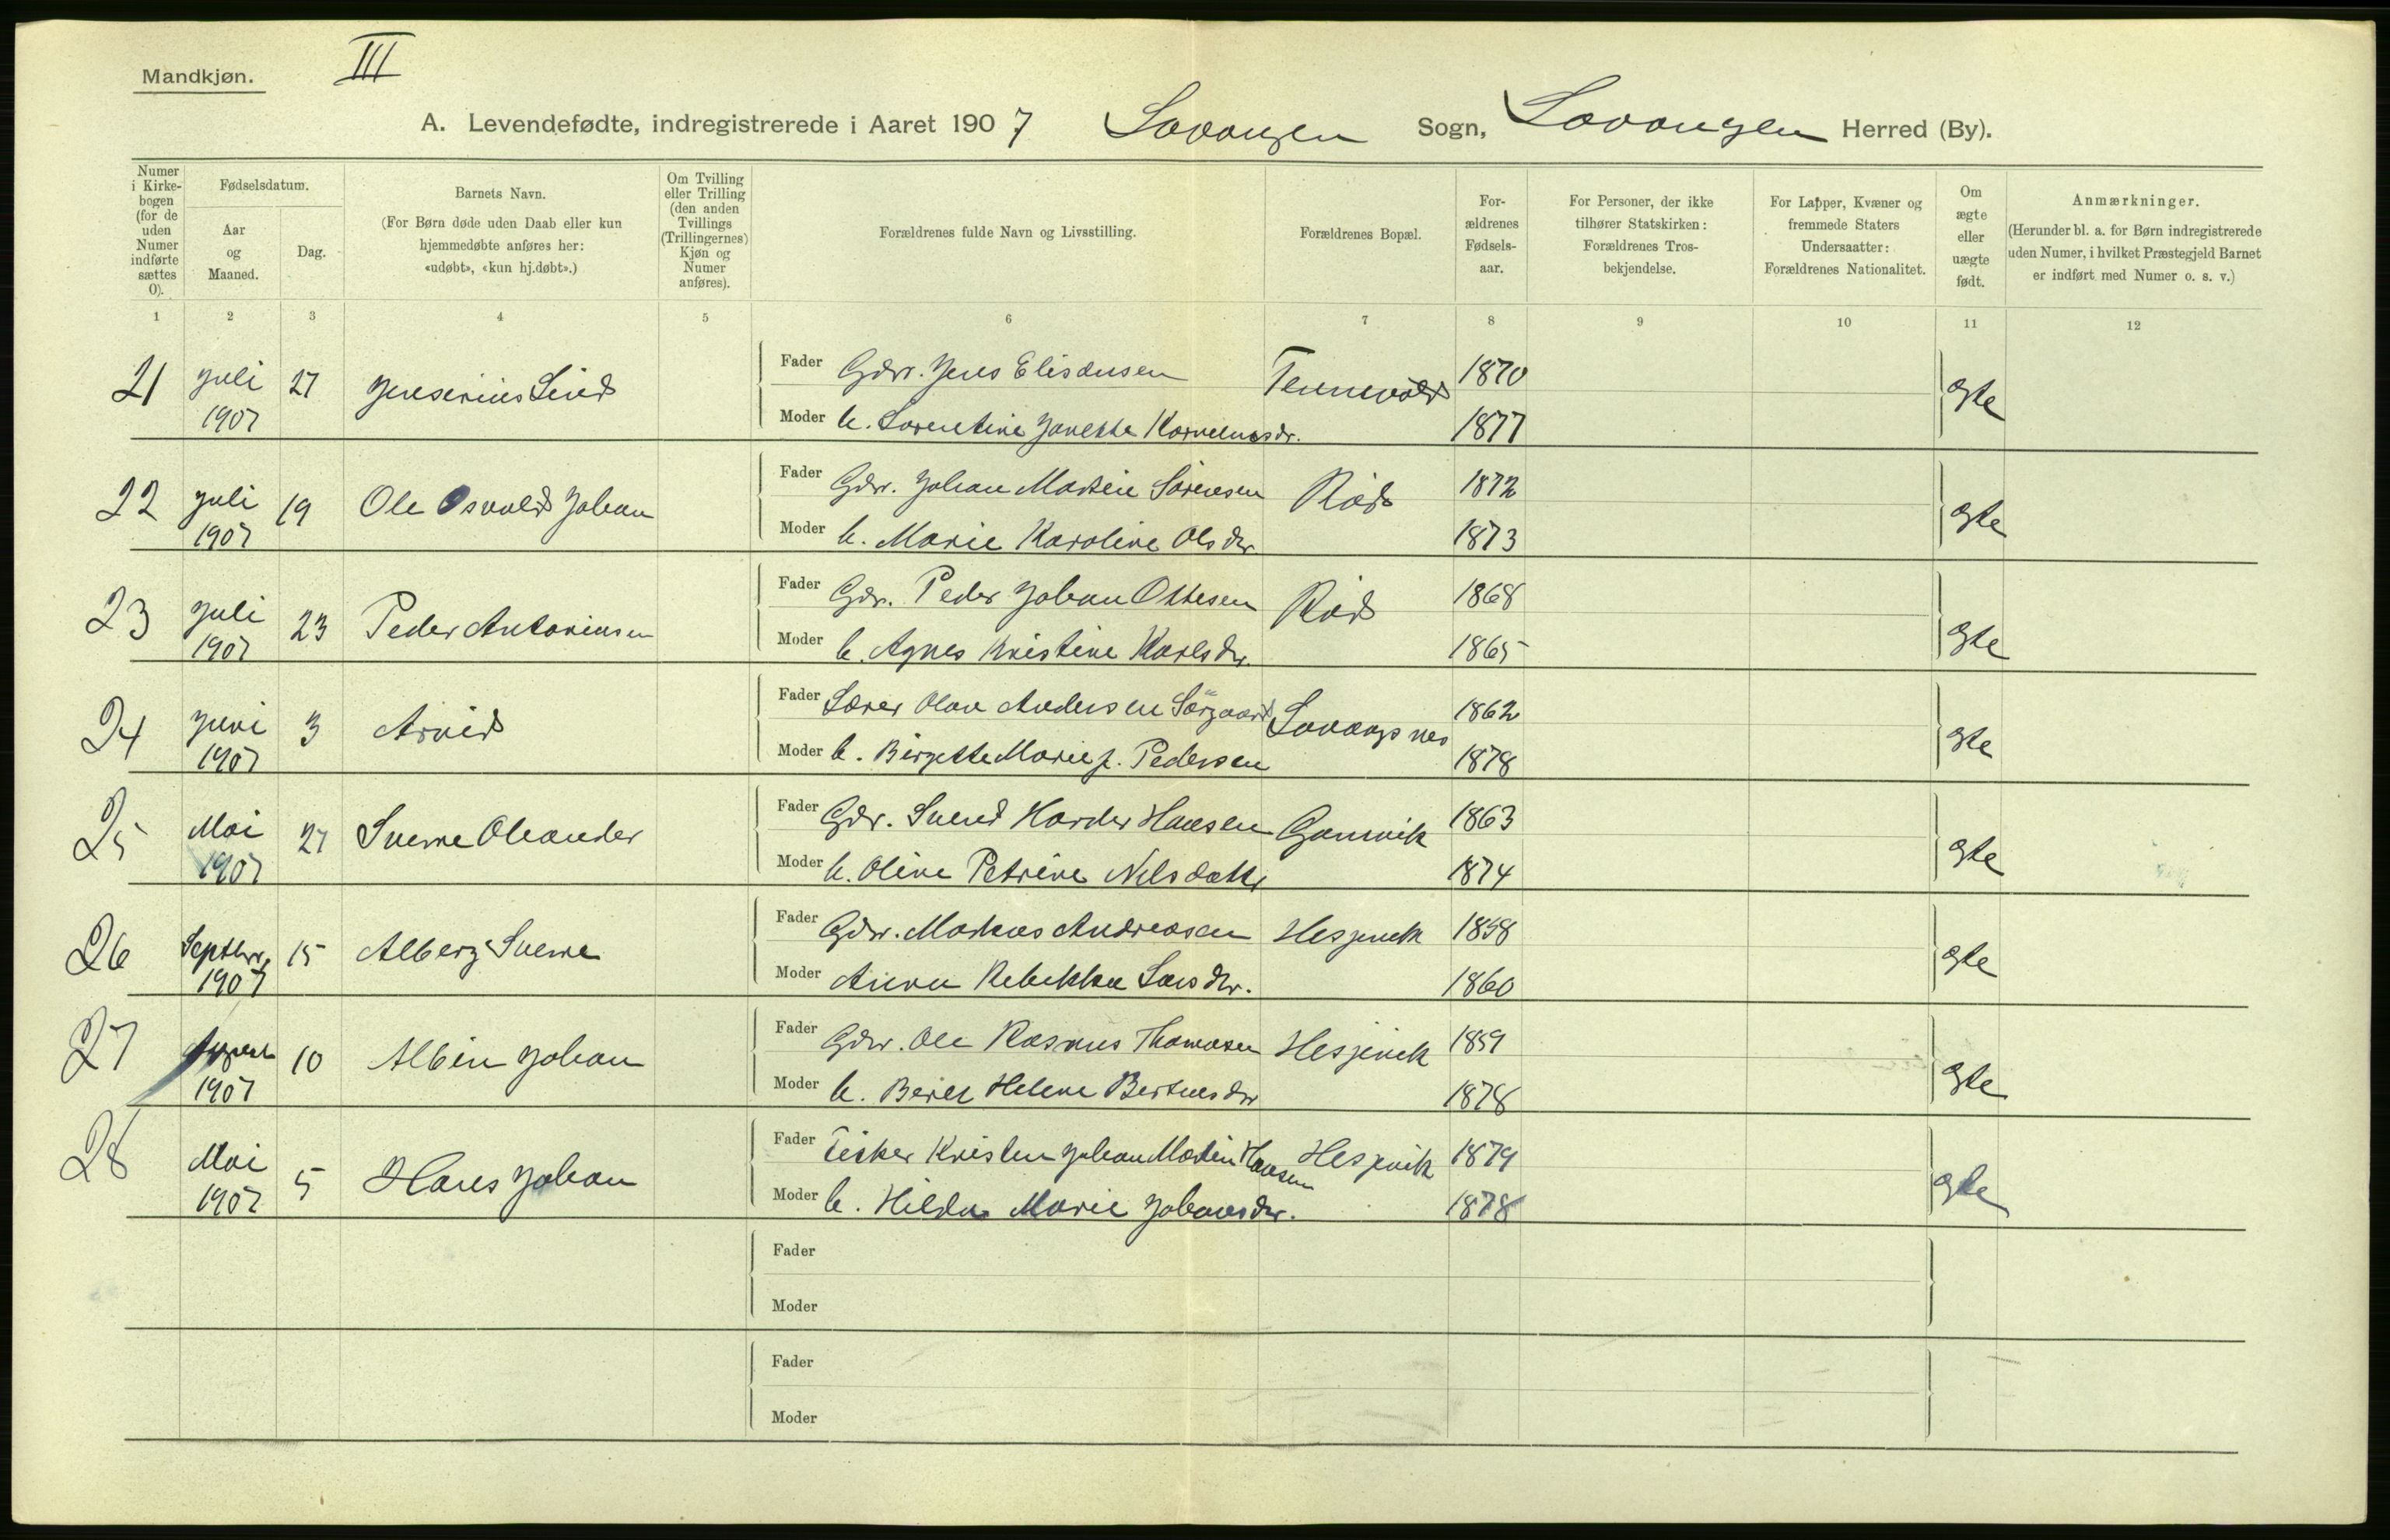 Mandkjøn.
III
A. Levendefødte, indregistrerede i Aaret 1907 Lavangen Sogn, Lavangen Herred (By).
Numer i Kirkebogen (for de uden Numer indførte sættes 0).
Fødselsdatum.
Aar og Maaned.
Dag.
Barnets Navn.
(For Børn døde uden Daab eller kun hjemmedøbte anføres her: «udøbt», «kun hj.døbt».)
Om Tvilling eller Trilling (den anden Tvillings (Trillingernes) Kjøn og Numer anføres).
Forældrenes fulde Navn og Livsstilling.
Forældrenes Bopæl.
Forældrenes Fødselsaar.
For Personer, der ikke tilhører Statskirken: Forældrenes Trosbekjendelse.
For Lapper, Kvæner og fremmede Staters Undersaatter: Forældrenes Nationalitet.
Om ægte eller uægte født.
Anmærkninger.
(Herunder bl. a. for Børn indregistrerede uden Numer, i hvilket Præstegjeld Barnet er indført med Numer o. s. v.)
1 2 3 4 5 6 7 8 9 10 11 12
21 Juli 1907 27 Jenserius Lind
Fader Gdr. Jens Elisæusen Tennevold 1870
Moder h. Lorentine Janette Kornelinesdr. 1877
Ægte
22 Juli 1907 19 Ole Osvald Johan
Fader Gdr. Johan Martin Sørensen Rød 1872
Moder h. Marie Karoline Olsdtr 1873
Ægte
23 Juli 1907 23 Peder Antoniusen
Fader Gdr. Peder Johan Ottesen Rød 1868
Moder h. Agnes Kristine Karlsdtr. 1865
Ægte
24 Juni 1907 3 Arvid
Fader Lærer Olav Andersen Sörgaard Lavangsnes 1862
Moder h. Birgette Marie f. Pedersen 1878
Ægte
25 Mai 1907 27 Sverre Oleander
Fader Gdr. Svend Harder Hansen Gamvik 1863
Moder h. Oline Petrine Nilsdattr 1874
Ægte
26 Septbr. 1907 15 Alberg Sverre
Fader Gdr. Markus Andreasen Hesjevik 1858
Moder Anna Rebekka Larsdtr. 1860
Ægte
27 August 1907 10 Albin Johan
Fader Gdr. Ole Rasmus Thomasen Hesjevik 1859
Moder h. Berit Helene Bertusdtr 1878
Ægte
28 Mai 1907 5 Hans Johan
Fader Fisker Kristen Johan Martin Hansen Hesjevik 1879
Moder h. Hilda Marie Johansdtr. 1878
Ægte
Fader
Moder
Fader
Moder